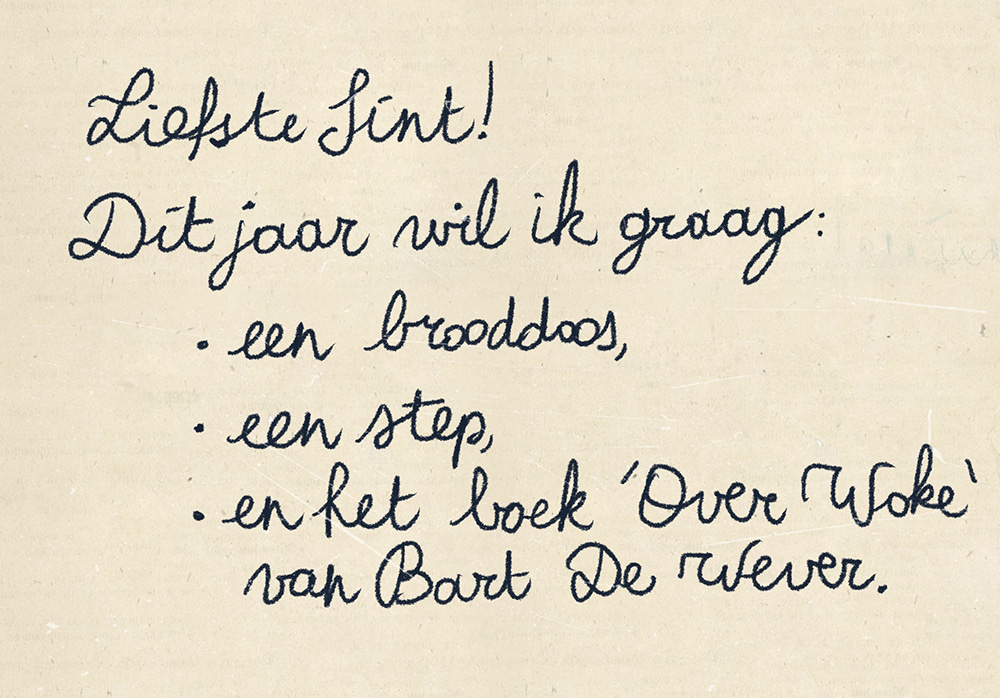 Liefste Sint!
Dit jaar wil ik graag:
· een brooddoos,
· een step,
· en het boek 'Over Woke'
van Bart De Wever.